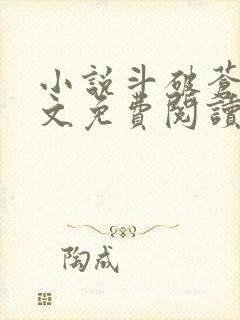 小説斗破蒼
文免費閱讀
陶成